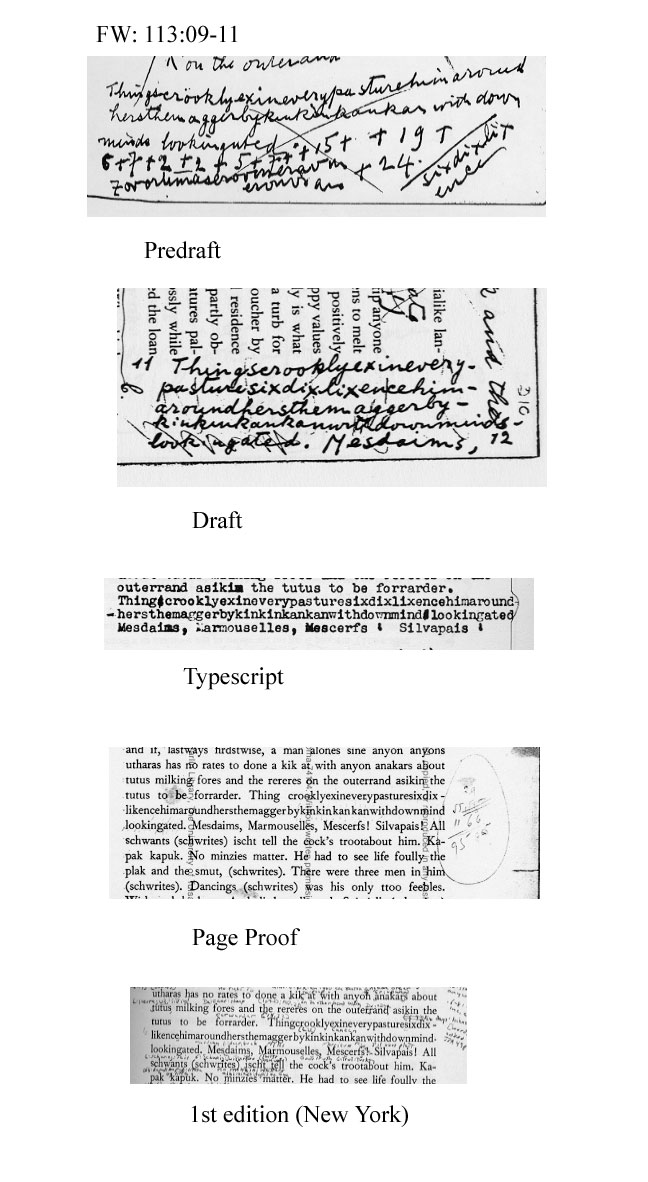 FW: 113:09-11
on the outerand
Thingscrooklyexineverypasturehimaround
hersthemaggerbykinkinkankan with down
minds lookingated
6+7+2+2+5+7+ +15+ +19+
+24.
sixdixlix
ence
Predraft
ialike lan-
ip anyone
ns to melt
positively
ppy values
ly is what
a turb for
oucher by
l residence
partly ob-
atures pal-
ssly while
ed the loan
and the
11 Thingscrooklyexinevery-
pasturesixdixlixencehim-
aroundhersthemaggerby-
kinkinkankanwithdownminds-
lookingated. Mesdaims, 12
Draft
outerrand asikin the tutus to be forrarder.
Thingscrooklyexineverypasturesixdixlixencehimaround-
-hersthemaggerbykinkinkankanwithdownmindslookingated
Mesdaims, Marmouselles, Mescerfs ! Silvapais !
Typescript
and if, lastways firdstwise, a man alones sine anyon anyons
utharas has no rates to done a kik at with anyon anakars about
tutus milking fores and the rereres on the outerrand asikin the
tutus to be forrarder. Thing crooklyexineverypasturesixdix-
likencehimaroundhersthemaggerbykinkinkankanwithdownmind
lookingated. Mesdaims, Marmouselles, Mescerfs! Silvapais! All
schwants (schwrites) ischt tell the cock's trootabout him. Ka-
pak kapuk. No minzies matter. He had to see life foully the
plak and the smut, (schwrites). There were three men in him
(schwrites). Dancings (schwrites) was his only ttoo feebles.
Page Proof
utharas has no rates to done a kik at with anyon anakars about
tutus milking fores and the rereres on the outerrand asikin the
tutus to be forrarder. Thingcrooklyexineverypasturesixdix-
likencehimaroundhersthemaggerbykinkinkankanwithdownmind-
lookingated. Mesdaims, Marmouselles, Mescerfs! Silvapais! All
schwants (schwrites) ischt tell the cock's trootabout him. Ka-
pak kapuk. No minzies matter. He had to see life foully the
1st edition (New York)